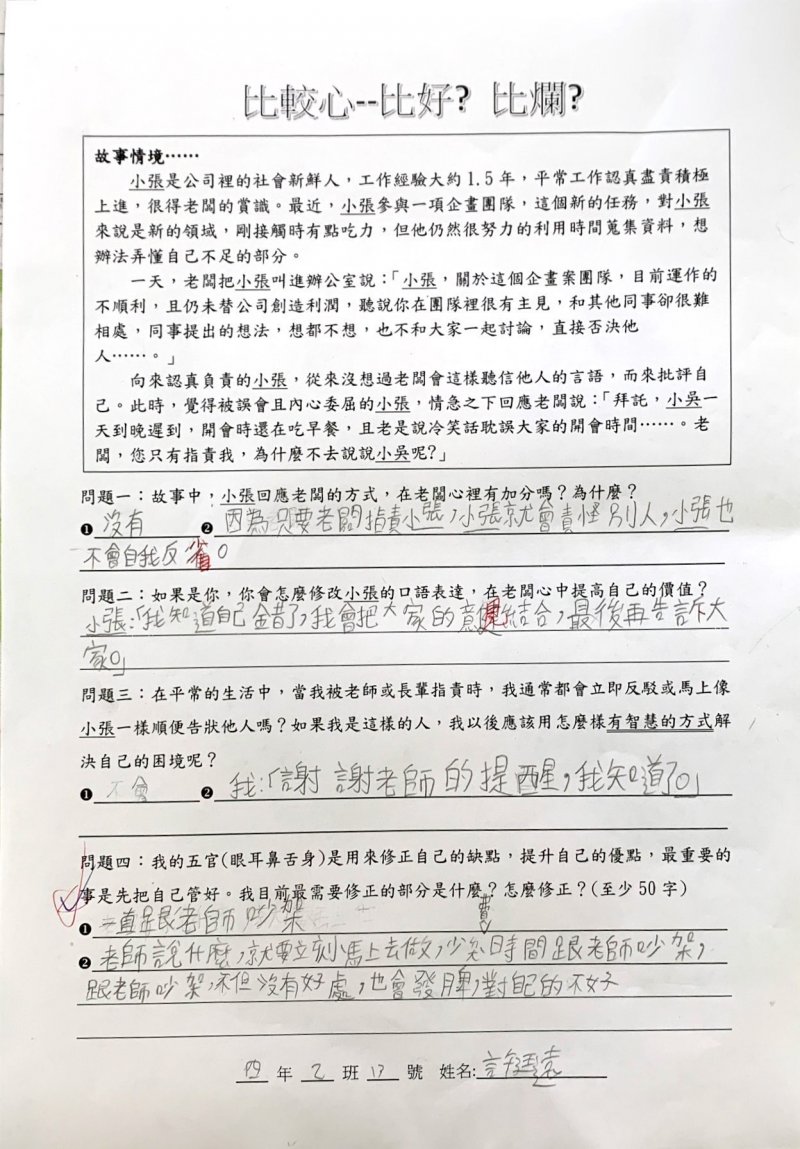 比較心--比好? 比爛?
故事情境……
小張是公司裡的社會新鮮人，工作經驗大約 1.5 年，平常工作認真盡責積極
上進，很得老闆的賞識。最近，小張參與一項企畫團隊，這個新的任務，對小張
來說是新的領域，剛接觸時有點吃力，但他仍然很努力的利用時間蒐集資料，想
辦法弄懂自己不足的部分。
一天，老闆把小張叫進辦公室說：「小張，關於這個企畫案團隊，目前運作的
不順利，且仍未替公司創造利潤，聽說你在團隊裡很有主見，和其他同事卻很難
相處，同事提出的想法，想都不想，也不和大家一起討論，直接否決他
人……。」
向來認真負責的小張，從來沒想過老闆會這樣聽信他人的言語，而來批評自
己。此時，覺得被誤會且內心委屈的小張，情急之下回應老闆說：「拜託，小吳一
天到晚遲到，開會時還在吃早餐，且老是說冷笑話耽誤大家的開會時間……。老
闆，您只有指責我，為什麼不去說說小吳呢?」
問題一：故事中，小張回應老闆的方式，在老闆心裡有加分嗎？為什麼？
❶ 沒有 ❷ 因為只要老闆指責小張，小張就會責怪別人，小張也
不會自我反省。
問題二：如果是你，你會怎麼修改小張的口語表達，在老闆心中提高自己的價值？
小張：「我知道自己錯了，我會把大家的意見結合，最後再告訴大
家。」
問題三：在平常的生活中，當我被老師或長輩指責時，我通常都會立即反駁或馬上像
小張一樣順便告狀他人嗎？如果我是這樣的人，我以後應該用怎麼樣有智慧的方式解
決自己的困境呢？
❶ 不會 ❷ 我：「謝謝老師的提醒，我知道了。」
問題四：我的五官(眼耳鼻舌身)是用來修正自己的缺點，提升自己的優點，最重要的
事是先把自己管好。我目前最需要修正的部分是什麼？怎麼修正？(至少 50 字)
❶ 一直跟老師吵架
❷ 老師說什麼，就要立刻馬上去做，少費時間跟老師吵架，
跟老師吵架，不但沒有好處，也會發脾，對自己的不好
四 年 乙 班 13 號 姓名: